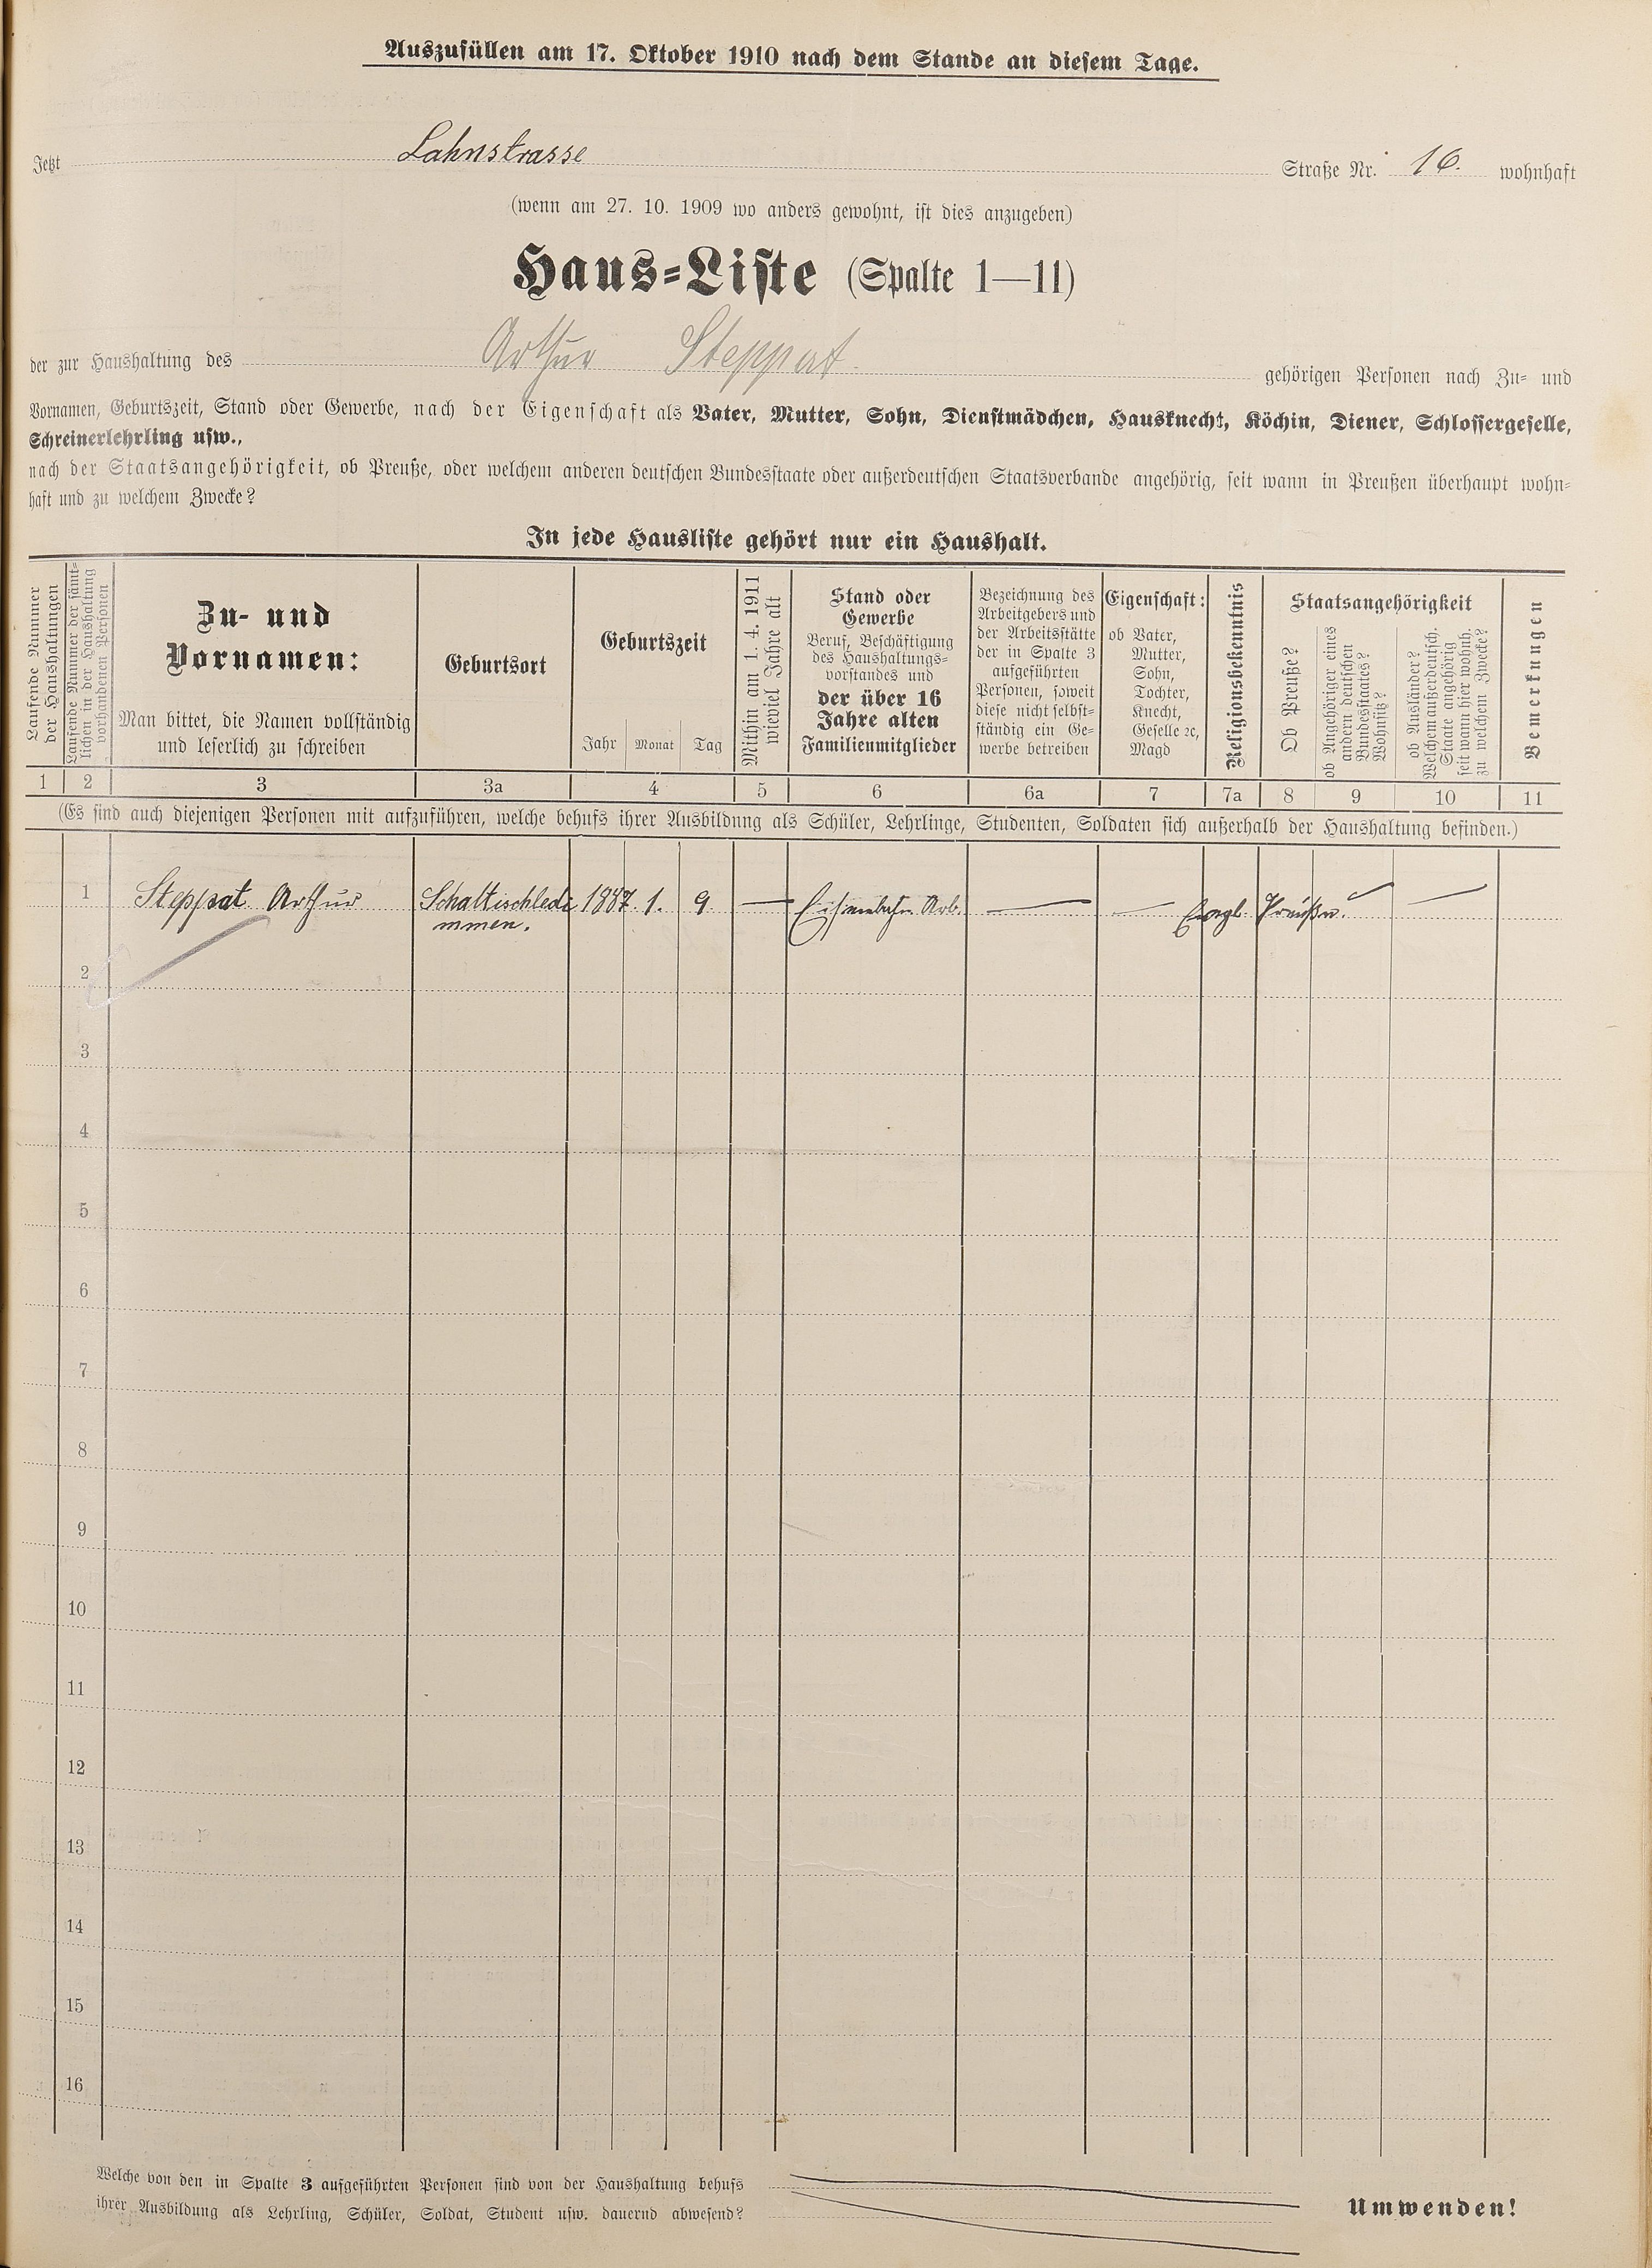 Auszufüllen am 17. Oktober 1910 nach dem Stande an diesem Tage.
Jetzt Lahnstrasse Straße Nr. 16. wohnhaft
(wenn am 27. 10. 1909 wo anders gewohnt, ist dies anzugeben)
Haus-Liste (Spalte 1—11)
der zur Haushaltung des Arthur Steppat. gehörigen Personen nach Zu- und
Vornamen, Geburtszeit, Stand oder Gewerbe, nach der Eigenschaft als Vater, Mutter, Sohn, Dienstmädchen, Hausknecht, Köchin, Diener, Schlossergeselle,
Schreinerlehrling usw.,
nach der Staatsangehörigkeit, ob Preuße, oder welchem anderen deutschen Bundesstaate oder außerdeutschen Staatsverbande angehörig, seit wann in Preußen überhaupt wohn-
haft und zu welchem Zwecke?
In jede Hausliste gehört nur ein Haushalt.
Laufende Nummer
der Haushaltungen
Laufende Nummer der sämt-
lichen in der Haushaltung
vorhandenen Personen
Zu- und
Vornamen:
Man bittet, die Namen vollständig
und leserlich zu schreiben
Geburtsort
Geburtszeit
Jahr Monat Tag
Mithin am 1. 4. 1911
wieviel Jahre alt
Stand oder
Gewerbe
Beruf, Beschäftigung
des Haushaltungs-
vorstandes und
der über 16
Jahre alten
Familienmitglieder
Bezeichnung des
Arbeitgebers und
der Arbeitsstätte
der in Spalte 3
aufgeführten
Personen, soweit
diese nicht selbst-
ständig ein Ge-
werbe betreiben
Eigenschaft:
ob Vater,
Mutter,
Sohn,
Tochter,
Knecht,
Geselle ꝛc,
Magd
Religionsbekenntnis
Staatsangehörigkeit
Ob Preuße?
ob Angehöriger eines
andern deutschen
Bundesstaates?
Wohnsitz?
ob Ausländer?
Welchem außerdeutsch.
Staate angehörig
seit wann hier wohnh.
zu welchem Zwecke?
Bemerkungen
1 2 3 3a 4 5 6 6a 7 7a 8 9 10 11
(Es sind auch diejenigen Personen mit aufzuführen, welche behufs ihrer Ausbildung als Schüler, Lehrlinge, Studenten, Soldaten sich außerhalb der Haushaltung befinden.)
1 Steppat Arthur Schaltischledi 1887. 1. 9 — Eisenbahn Arb. — — Evgl. Preuße. —
mmen.
2
3
4
5
6
7
8
9
10
11
12
13
14
15
16
Welche von den in Spalte 3 aufgeführten Personen sind von der Haushaltung behufs
ihrer Ausbildung als Lehrling, Schüler, Soldat, Student usw. dauernd abwesend?
Umwenden!